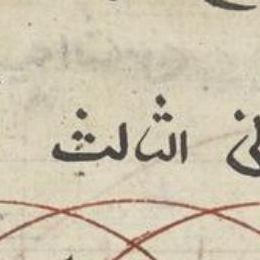 الثالث